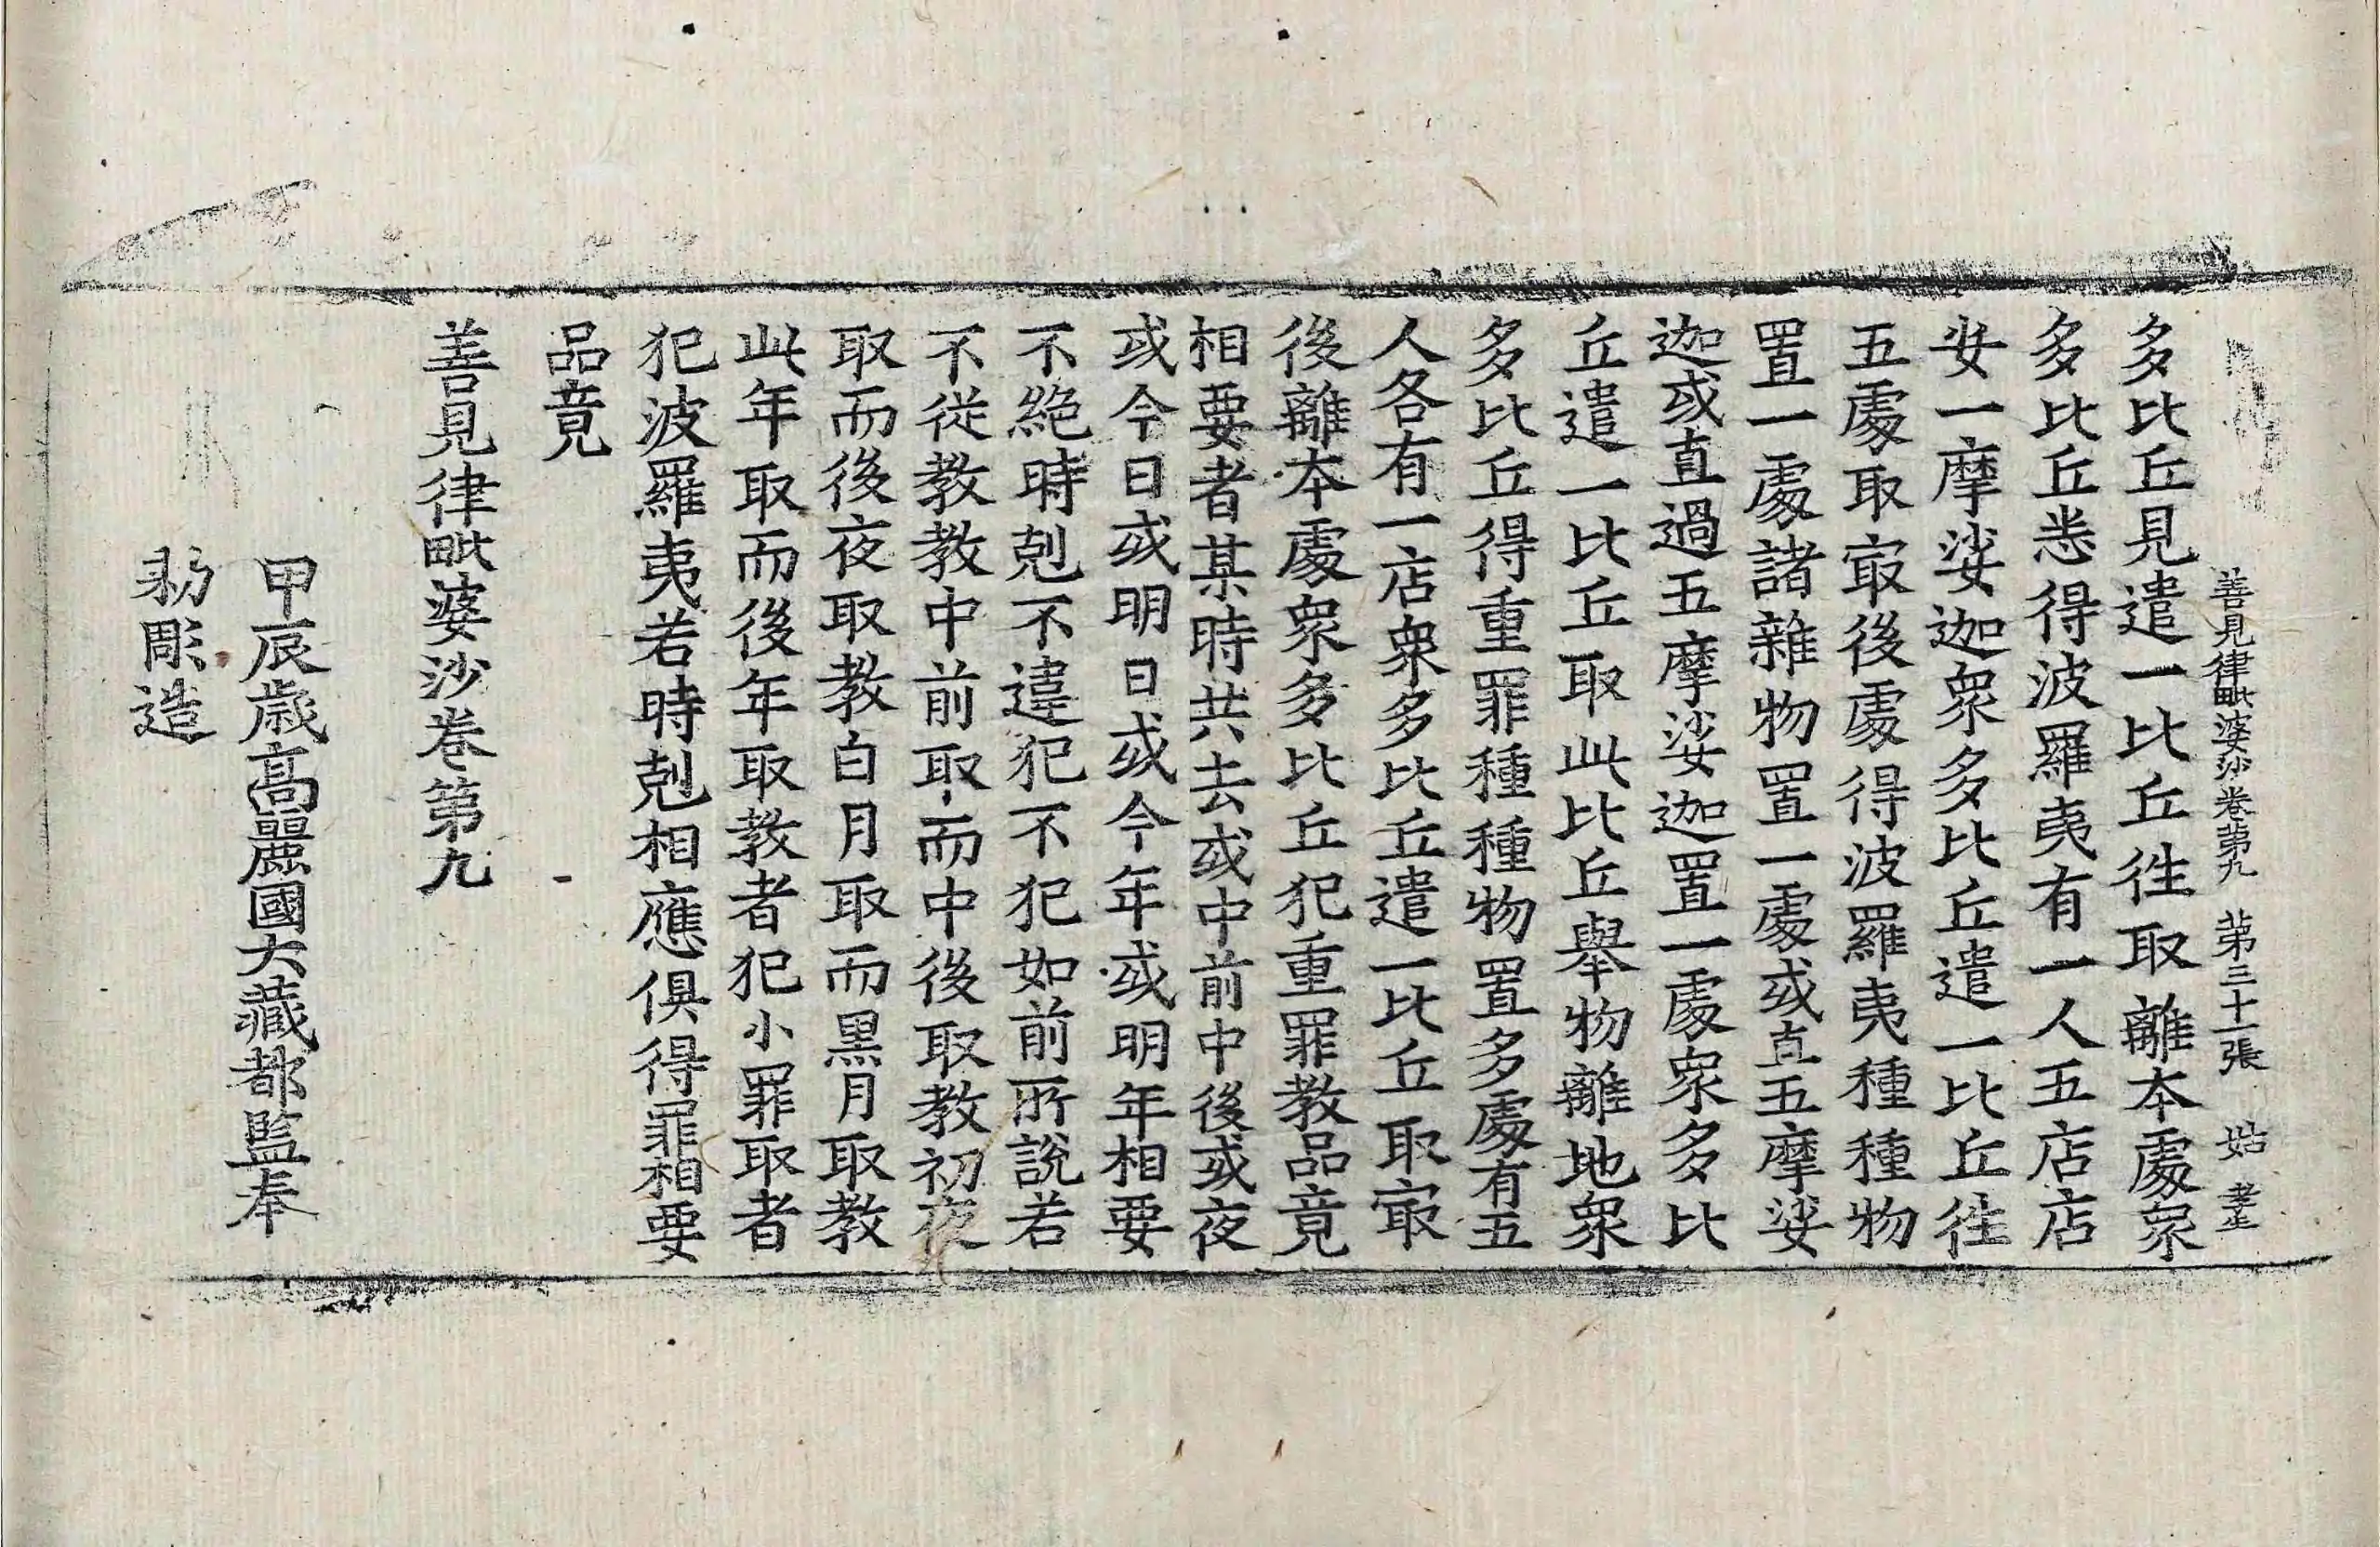 善見律毗婆沙卷第九 第三十一張 姑 孝生
多比丘見遣一比丘往取離本處衆
多比丘悉得波羅夷有一人五店店
安一摩娑迦衆多比丘遣一比丘往
五處取㝡後處得波羅夷種種物
置一處諸雜物置一處或直五摩娑
迦或直過五摩娑迦置一處衆多比
丘遣一比丘取此比丘舉物離地衆
多比丘得重罪種種物置多處有五
人各有一店衆多比丘遣一比丘取㝡
後離本處衆多比丘犯重罪教品竟
相要者某時共去或中前中後或夜
或今日或明日或今年或明年相要
不絶時剋不違犯不犯如前所說若
不從教教中前取而中後取教初夜
取而後夜取教白月取而黑月取教
此年取而後年取教者犯小罪取者
犯波羅夷若時剋相應俱得罪相要
品竟
善見律毗婆沙卷第九
甲辰歲高麗國大藏都監奉
勑彫造